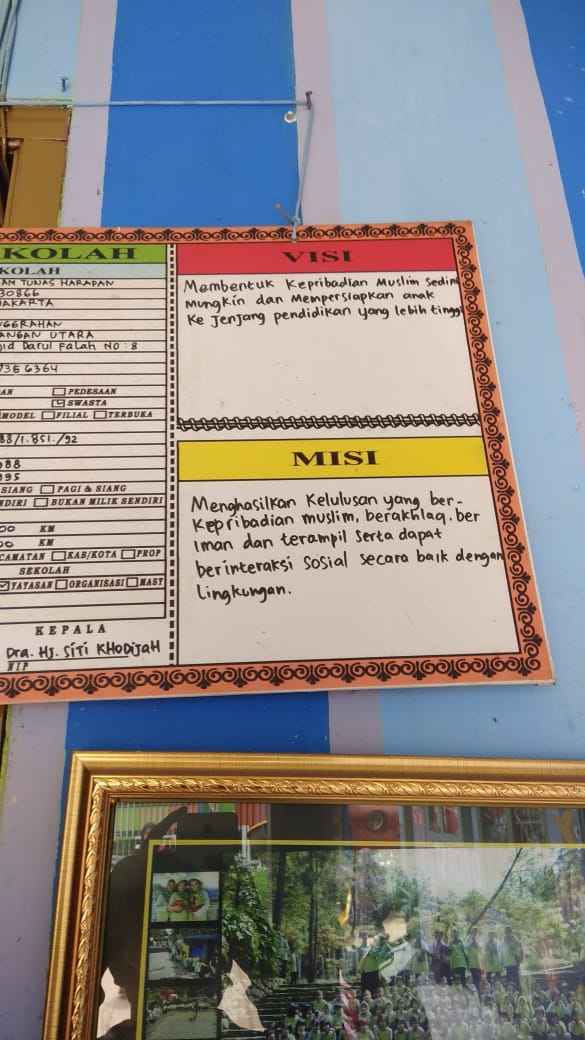 KOLAH
KOLAH
AM TUNAS HARAPAN
30866
JAKARTA
NGGERAHAN
ANGAN UTARA
jid Darul Falah NO : 8
7356364
AN PEDESAAN
SWASTA
MODEL FILIAL TERBUKA
88/1.851./92
988
995
SIANG PAGI & SIANG
NDIRI BUKAN MILIK SENDIRI
00 KM
00 KM
CAMATAN KAB/KOTA PROP
SEKOLAH
YAYASAN ORGANISASI MASY
KEPALA
Dra. HJ. SITI KHODIJAH
NIP
VISI
Membentuk Kepribadian Muslim Sedini
Mungkin dan Mempersiapkan anak
Ke Jenjang pendidikan yang lebih tinggi
MISI
Menghasilkan Kelulusan yang ber-
Kepribadian muslim, berakhlaq, ber
iman dan terampil serta dapat
berinteraksi sosial secara baik dengan
Lingkungan.